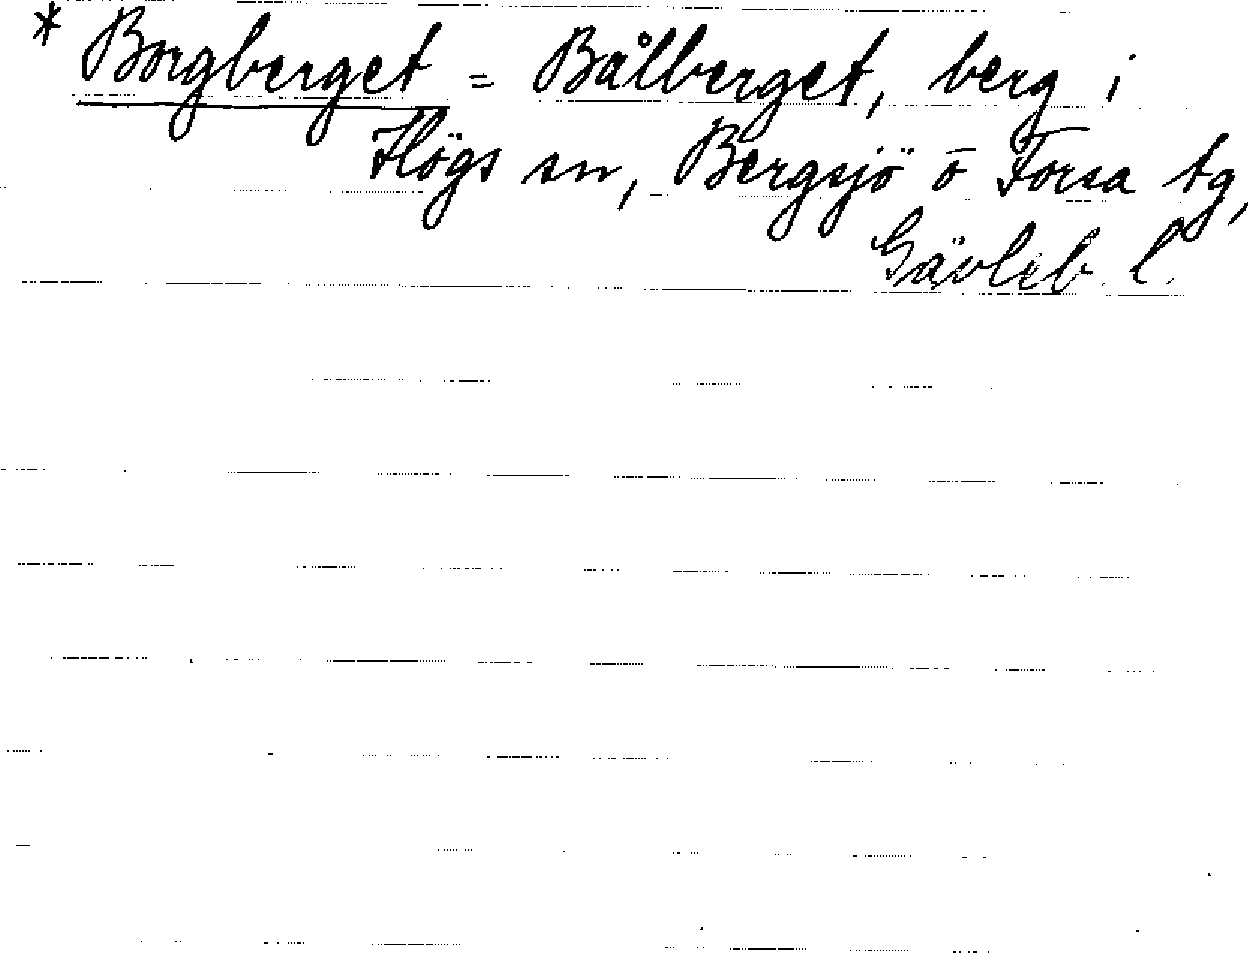 * Borgberget = Bålberget, berg i
Högs sn, Bergsjö o Forsa tg,
Gävleb. l.